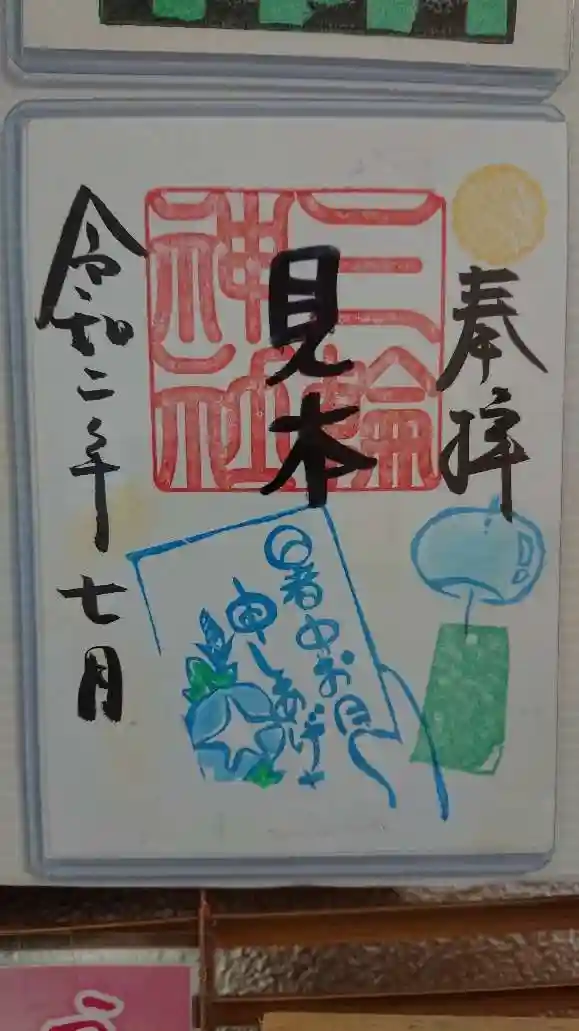 奉拝
三輪
神社
見本
令和二年七月
暑中お見舞
申しあげます